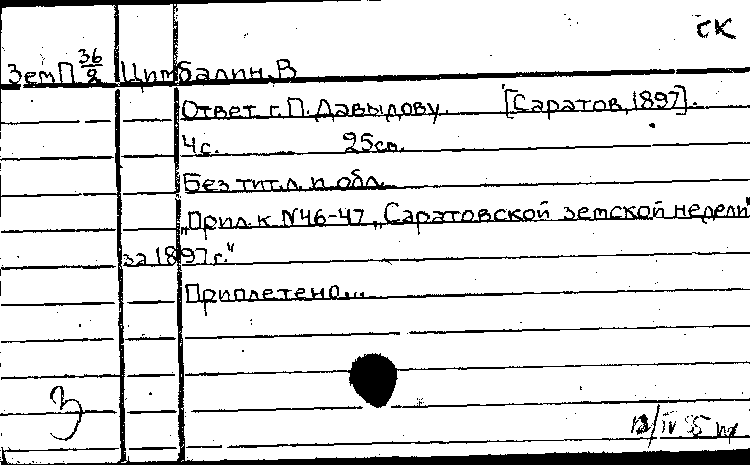 СК
ЗемП 36/2 Цимбалин, В
Ответ г. П. Давыдову. [Саратов, 1897].
4с. 25см.
Без тит. л. и обл.
„Прил. к N46-47 „Саратовской земской недели"
за 1897 г."
Приплетено...
З
/IV 55